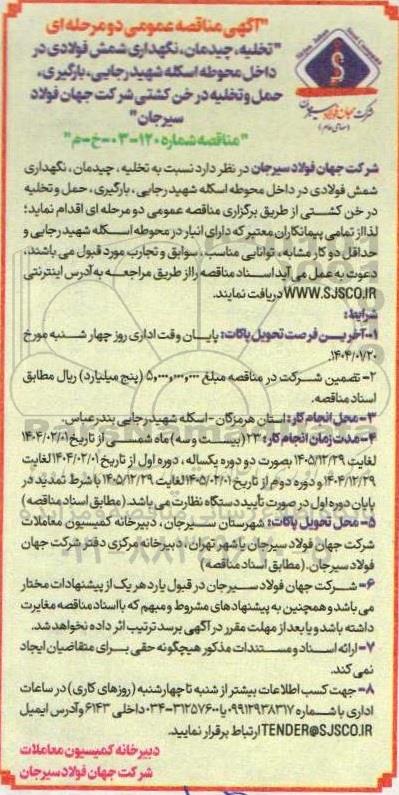 "آگهی مناقصه عمومی دو مرحله ای
"تخلیه، چیدمان، نگهداری شمش فولادی در
داخل محوطه اسکله شهید رجایی، بارگیری،
حمل و تخلیه در خن کشتی شرکت جهان فولاد
سیرجان"
"مناقصه شماره ۱۲۰-۰۳-خ-م"
شرکت جهان فولاد سیرجان
(سهامی عام)
شرکت جهان فولاد سیرجان در نظر دارد نسبت به تخلیه، چیدمان، نگهداری
شمش فولادی در داخل محوطه اسکله شهید رجایی، بارگیری، حمل و تخلیه
در خن کشتی از طریق برگزاری مناقصه عمومی دو مرحله ای اقدام نماید؛
لذا از تمامی پیمانکاران معتبر که دارای انبار در محوطه اسکله شهید رجایی و
حداقل دو کار مشابه، توانایی مناسب، سوابق و تجارب مورد قبول می باشند،
دعوت به عمل می آید اسناد مناقصه را از طریق مراجعه به آدرس اینترنتی
WWW.SJSCO.IR دریافت نمایند.
شرایط:
۱- آخرین فرصت تحویل پاکات: پایان وقت اداری روز چهار شنبه مورخ
۱۴۰۴/۰۱/۲۰.
۲- تضمین شرکت در مناقصه مبلغ ۵,۰۰۰,۰۰۰,۰۰۰ (پنج میلیارد) ریال مطابق
اسناد مناقصه.
۳- محل انجام کار: استان هرمزگان - اسکله شهید رجایی بندرعباس.
۴- مدت زمان انجام کار: ۲۳ (بیست و سه) ماه شمسی از تاریخ ۱۴۰۴/۰۲/۰۱
لغایت ۱۴۰۵/۱۲/۲۹ بصورت دو دوره یکساله، دوره اول از تاریخ ۱۴۰۴/۰۲/۰۱ لغایت
۱۴۰۴/۱۲/۲۹ و دوره دوم از تاریخ ۱۴۰۵/۰۲/۰۱ لغایت ۱۴۰۵/۱۲/۲۹ با شرط تمدید در
پایان دوره اول در صورت تأیید دستگاه نظارت می باشد. (مطابق اسناد مناقصه)
۵- محل تحویل پاکات: شهرستان سیرجان، دبیرخانه کمیسیون معاملات
شرکت جهان فولاد سیرجان یا شهر تهران، دبیرخانه مرکزی دفتر شرکت جهان
فولاد سیرجان. (مطابق اسناد مناقصه)
۶- شرکت جهان فولاد سیرجان در قبول یا رد هر یک از پیشنهادات مختار
می باشد و همچنین به پیشنهادهای مشروط و مبهم که با اسناد مناقصه مغایرت
داشته باشد و یا بعد از مهلت مقرر در آگهی برسد ترتیب اثر داده نخواهد شد.
۷- ارائه اسناد و مستندات مذکور هیچگونه حقی برای متقاضیان ایجاد
نمی کند.
۸- جهت کسب اطلاعات بیشتر از شنبه تا چهارشنبه (روزهای کاری) در ساعات
اداری با شماره ۰۹۹۱۲۹۳۸۳۱۷ یا ۳۱۲۵۷۶۰۰-۰۳۴ داخلی ۶۱۴۳ و آدرس ایمیل
TENDER@SJSCO.IR ارتباط برقرار نمایید.
دبیرخانه کمیسیون معاملات
شرکت جهان فولاد سیرجان